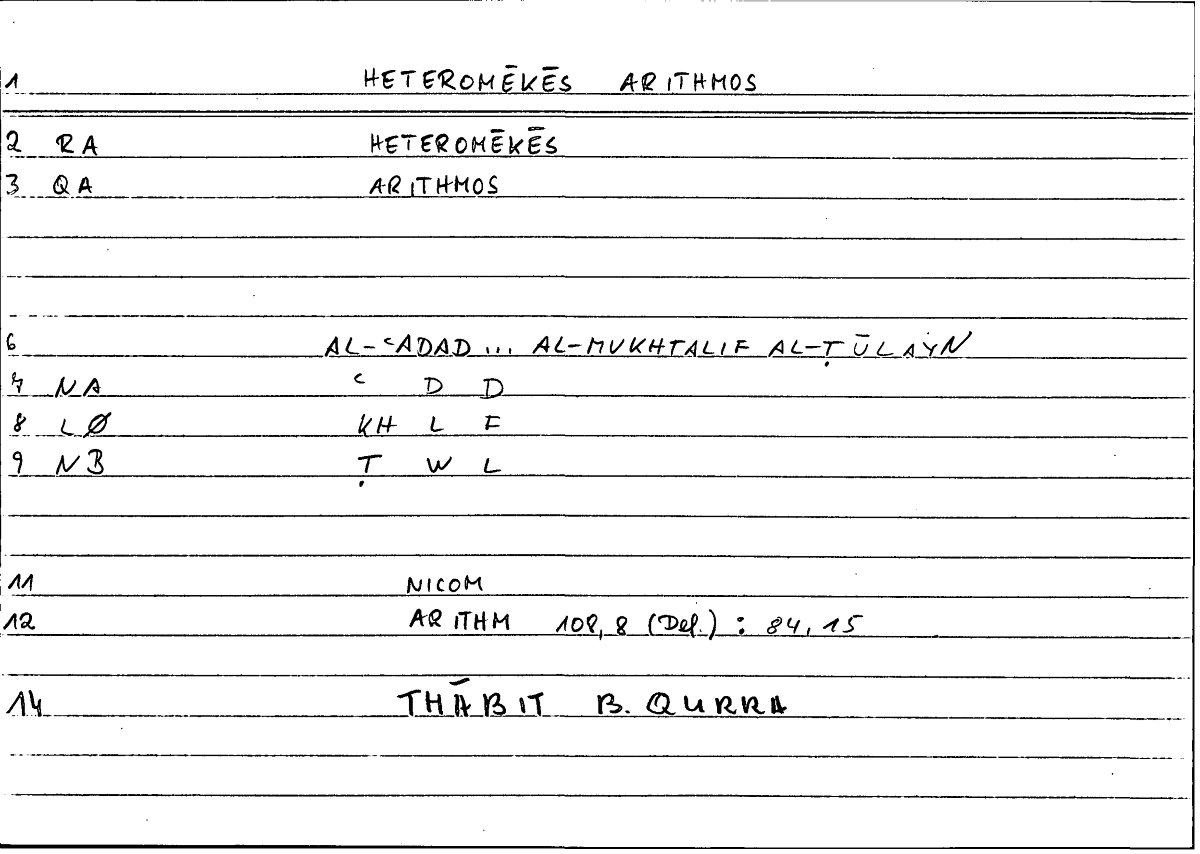 1 HETEROMĒKĒS ARITHMOS
2 RA HETEROMĒKĒS
3 QA ARITHMOS
6 AL-ʿADAD ... AL-MUKHTALIF AL-ṬŪLAYN
7 NA ʿ D D
8 LØ KH L F
9 NB Ṭ W L
11 NICOM
12 ARITHM 108,8 (Def.) : 84,15
14 THĀBIT B. QURRA